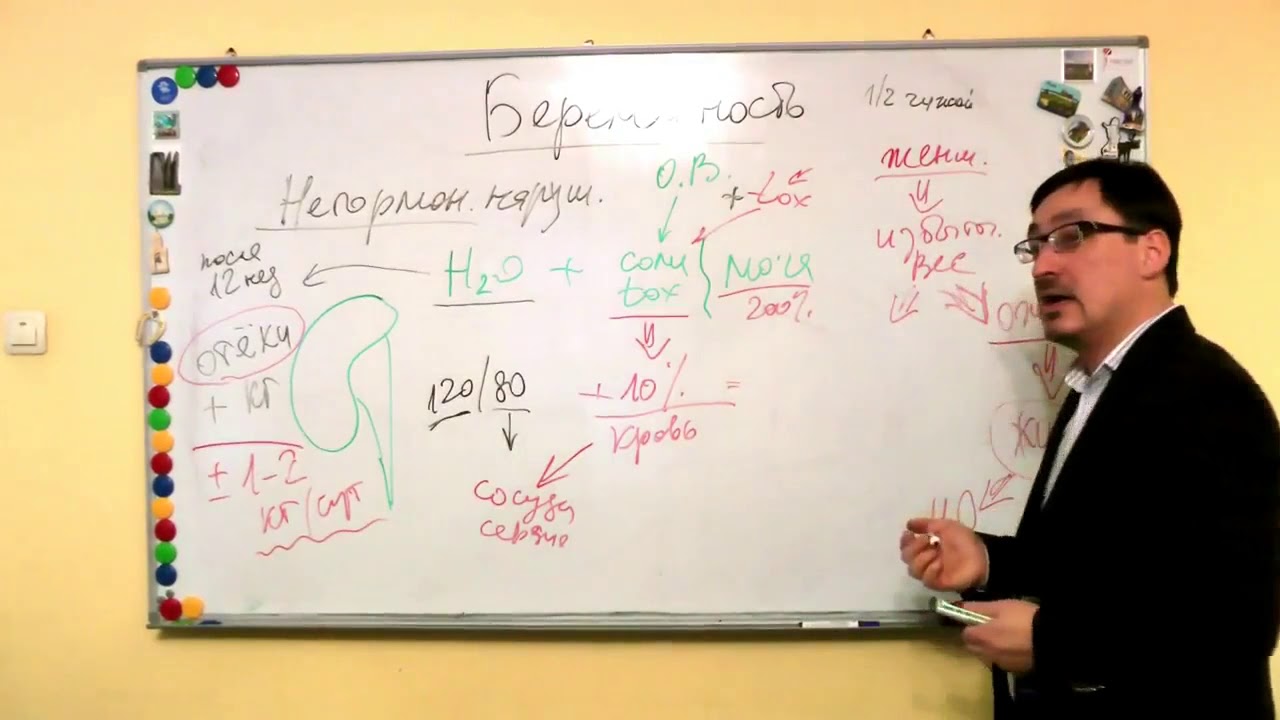 Беременность
1/2 чужой
Негормон. наруш.
О.В.
+ tox
женщ.
избыточ.
вес
после
12 нед
H₂O + соли
tox
моча
200%
отёки
+ кг
± 1-2
кг/сут
120/80
+ 10% =
кровь
сосуды
сердце